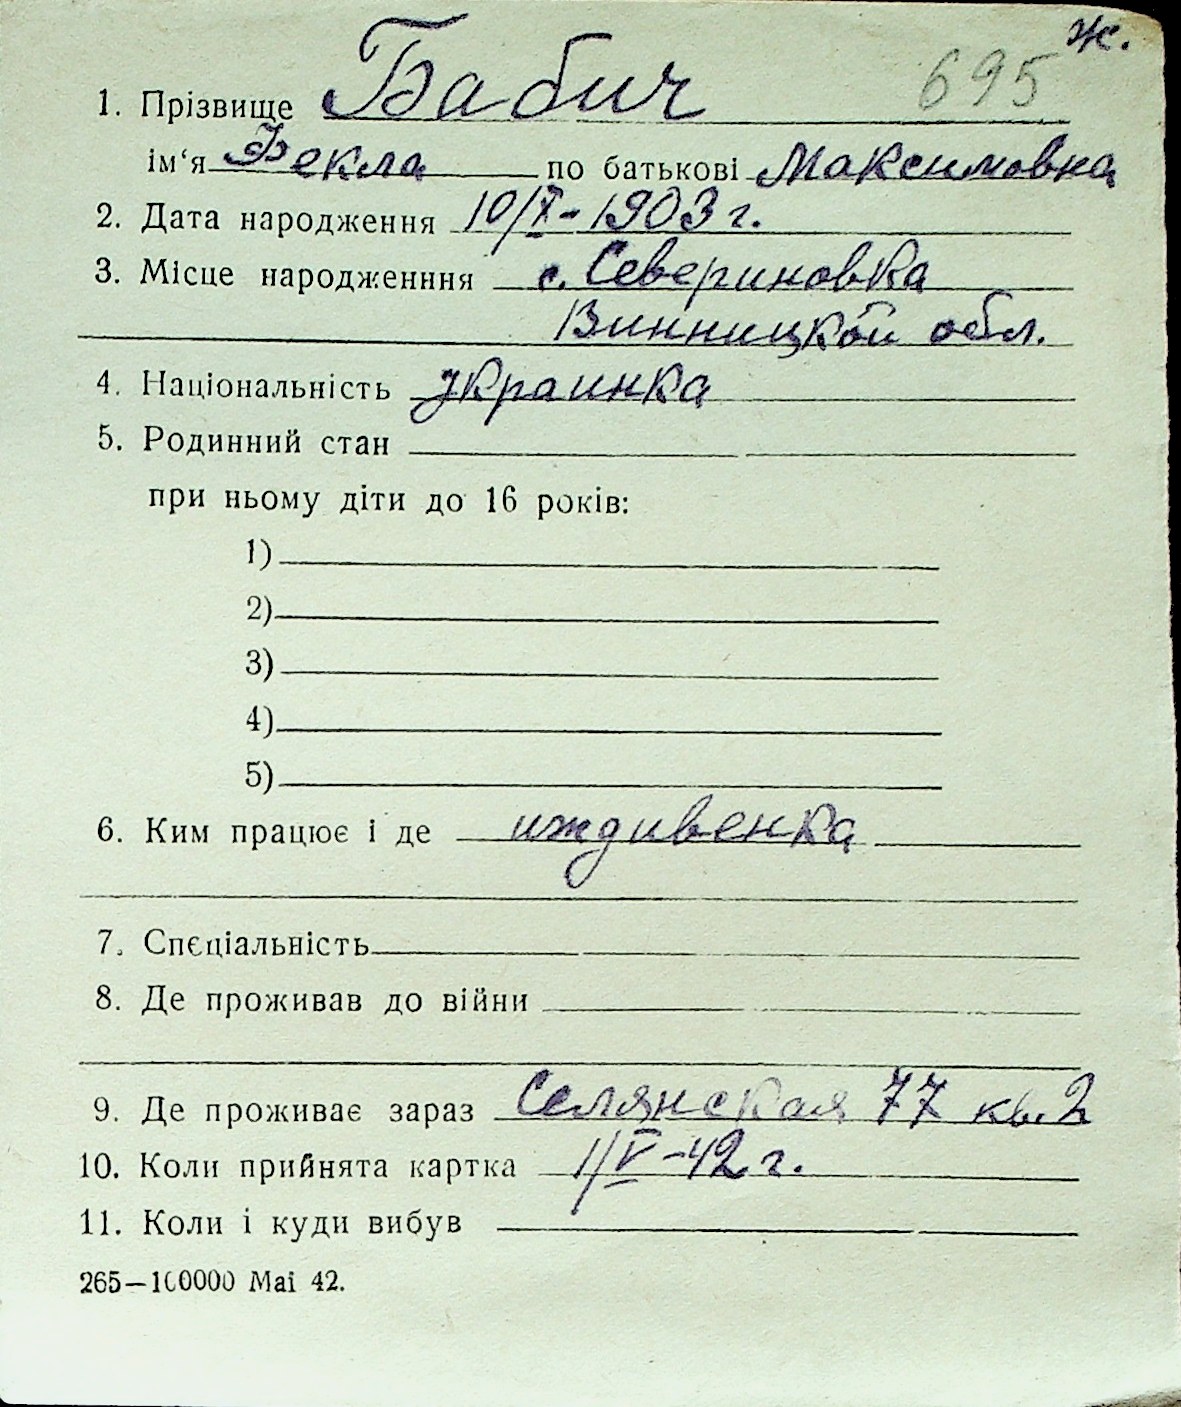 ж.
695
1. Прізвище Бабич
ім‘я Фекла по батькові Максимовна
2. Дата народження 10/X - 1903 г.
3. Місце народженння с. Севериновка
Винницкой обл.
4. Національність украинка
5. Родинний стан
при ньому діти до 16 років:
1)
2)
3)
4)
5)
6. Ким працює і де иждивенка
7. Спєціальність
8. Де проживав до війни
9. Де проживає зараз Селянская 77 кв. 2
10. Коли прийнята картка 1/V - 42 г.
11. Коли і куди вибув
265—100000 Mai 42.